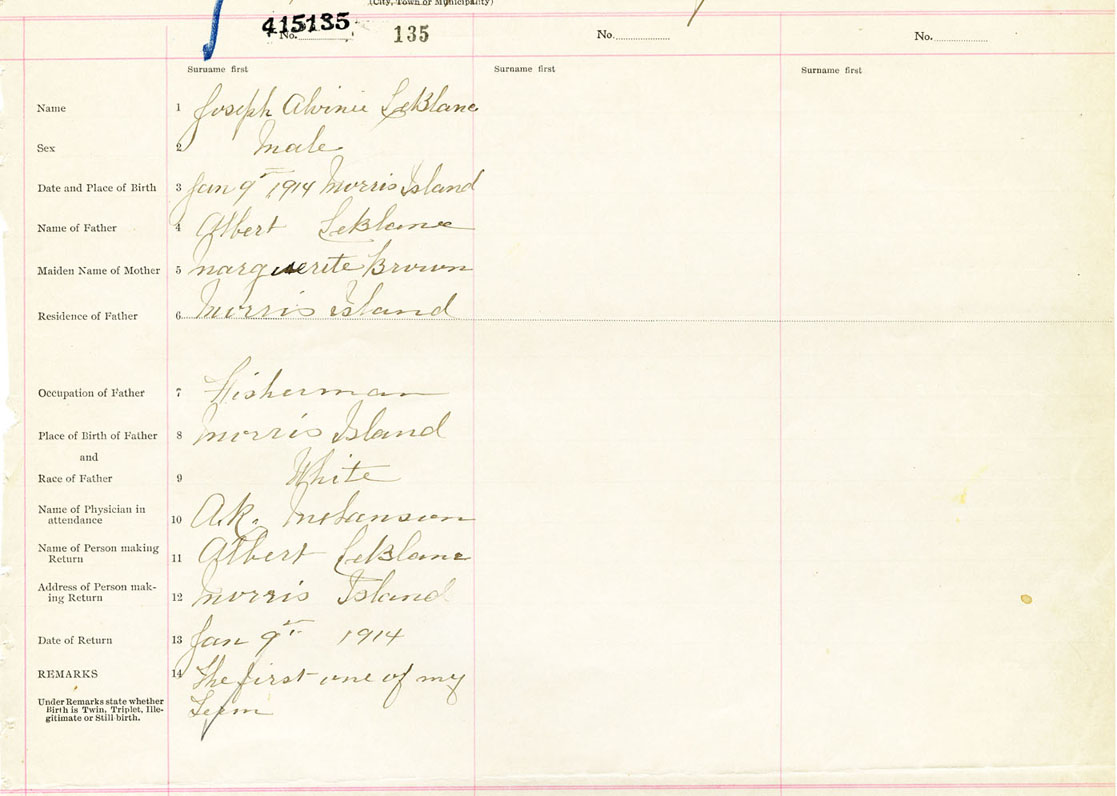 (City, Town or Municipality)
415135
No. 135 No. No.
Surname first Surname first Surname first
Name 1 Joseph Alvinie LeBlanc
Sex 2 Male
Date and Place of Birth 3 Jan 9th 1914 Morris Island
Name of Father 4 Albert LeBlanc
Maiden Name of Mother 5 Marguerite Brown
Residence of Father 6 Morris Island
Occupation of Father 7 Fisherman
Place of Birth of Father 8 Morris Island
and
Race of Father 9 White
Name of Physician in
attendance 10 A.K. Melanson
Name of Person making
Return 11 Albert LeBlanc
Address of Person mak-
ing Return 12 Morris Island
Date of Return 13 Jan 9th 1914
REMARKS 14 The first one of my
Term
Under Remarks state whether
Birth is Twin, Triplet, Ille-
gitimate or Still birth.